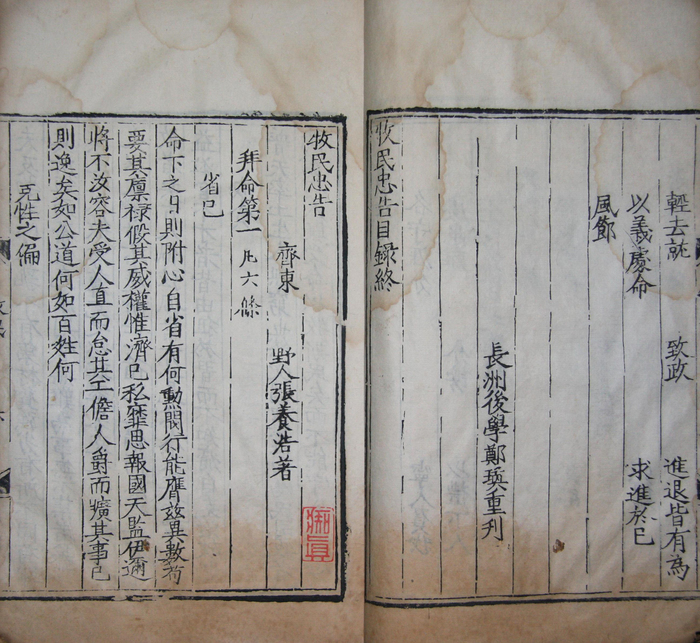 輕去就 致政 進退皆有為
以義處命 求進於已
風節
長洲後學鄭重刊
牧民忠告目録終
牧民忠告
齊東 野人張養浩著
拜命第一 凡六條
省已
命下之日則附心自省有何勳閥行能膺玆異數苟
要其廩祿假其威權惟濟已私靡思報國天監伊邇
將不汝容夫受人直而怠其工儋人爵而曠其事已
則逸矣如公道何如百姓何
克性之偏